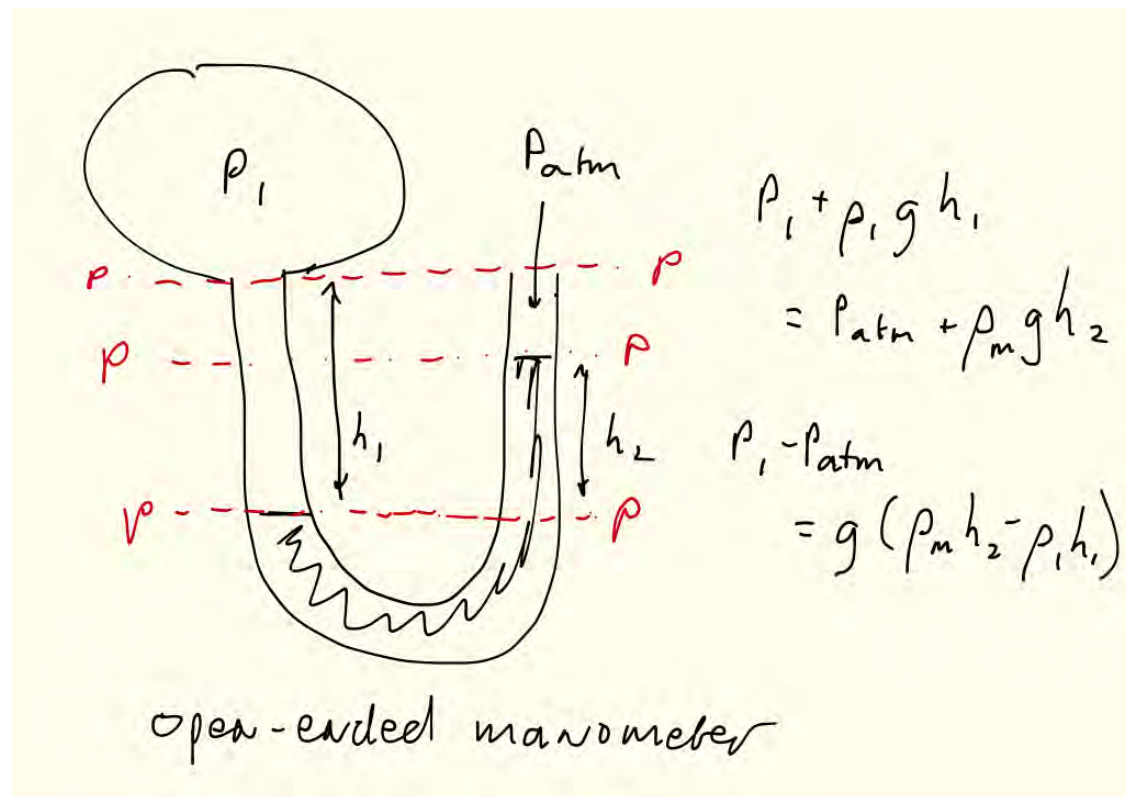 P₁
Patm
P P
P P
h₁
h₂
P P
P₁ + ρ₁ g h₁
= Patm + ρₘ g h₂
P₁ - Patm
= g (ρₘ h₂ - ρ₁ h₁)
open-ended manometer